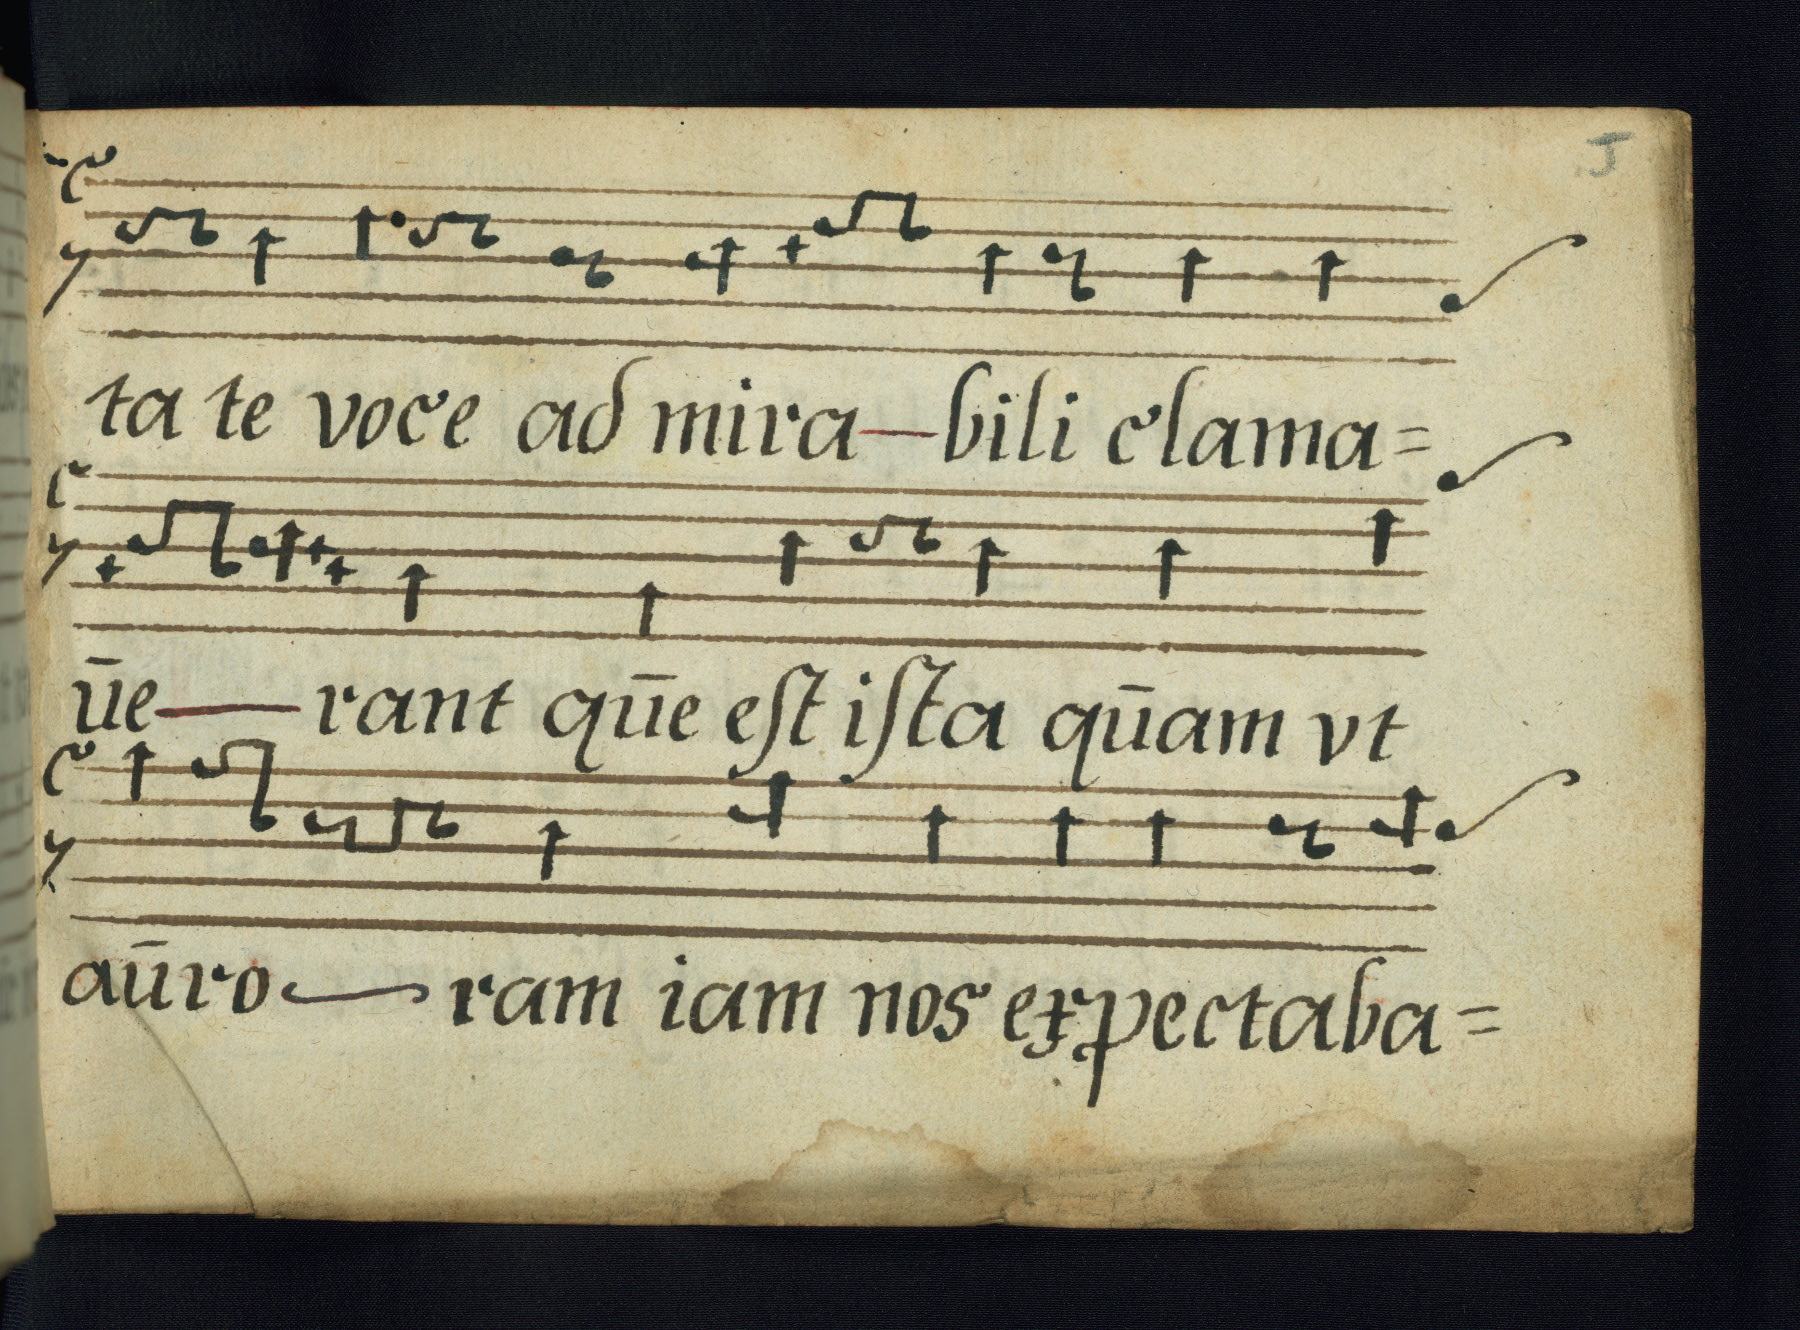 J
ta te voce ad mira—bili clama=
ūe—rant qūe eſt iſta qūam vt
aūro—ram iam nos expectaba=